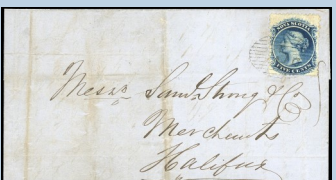 NOVA SCOTIA
FIVE CENTS
Messrs Saml Strong & Co
Merchants
Halifax